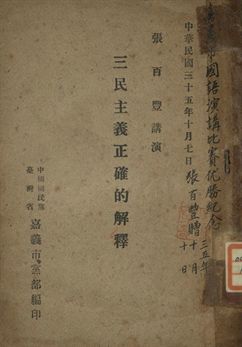 國語演講比賽優勝紀念
張百豐贈
三五年
十月
十日
中華民國三十五年十月七日
張百豐講演
三民主義正確的解釋
中國國民黨
臺灣省
嘉義市黨部編印